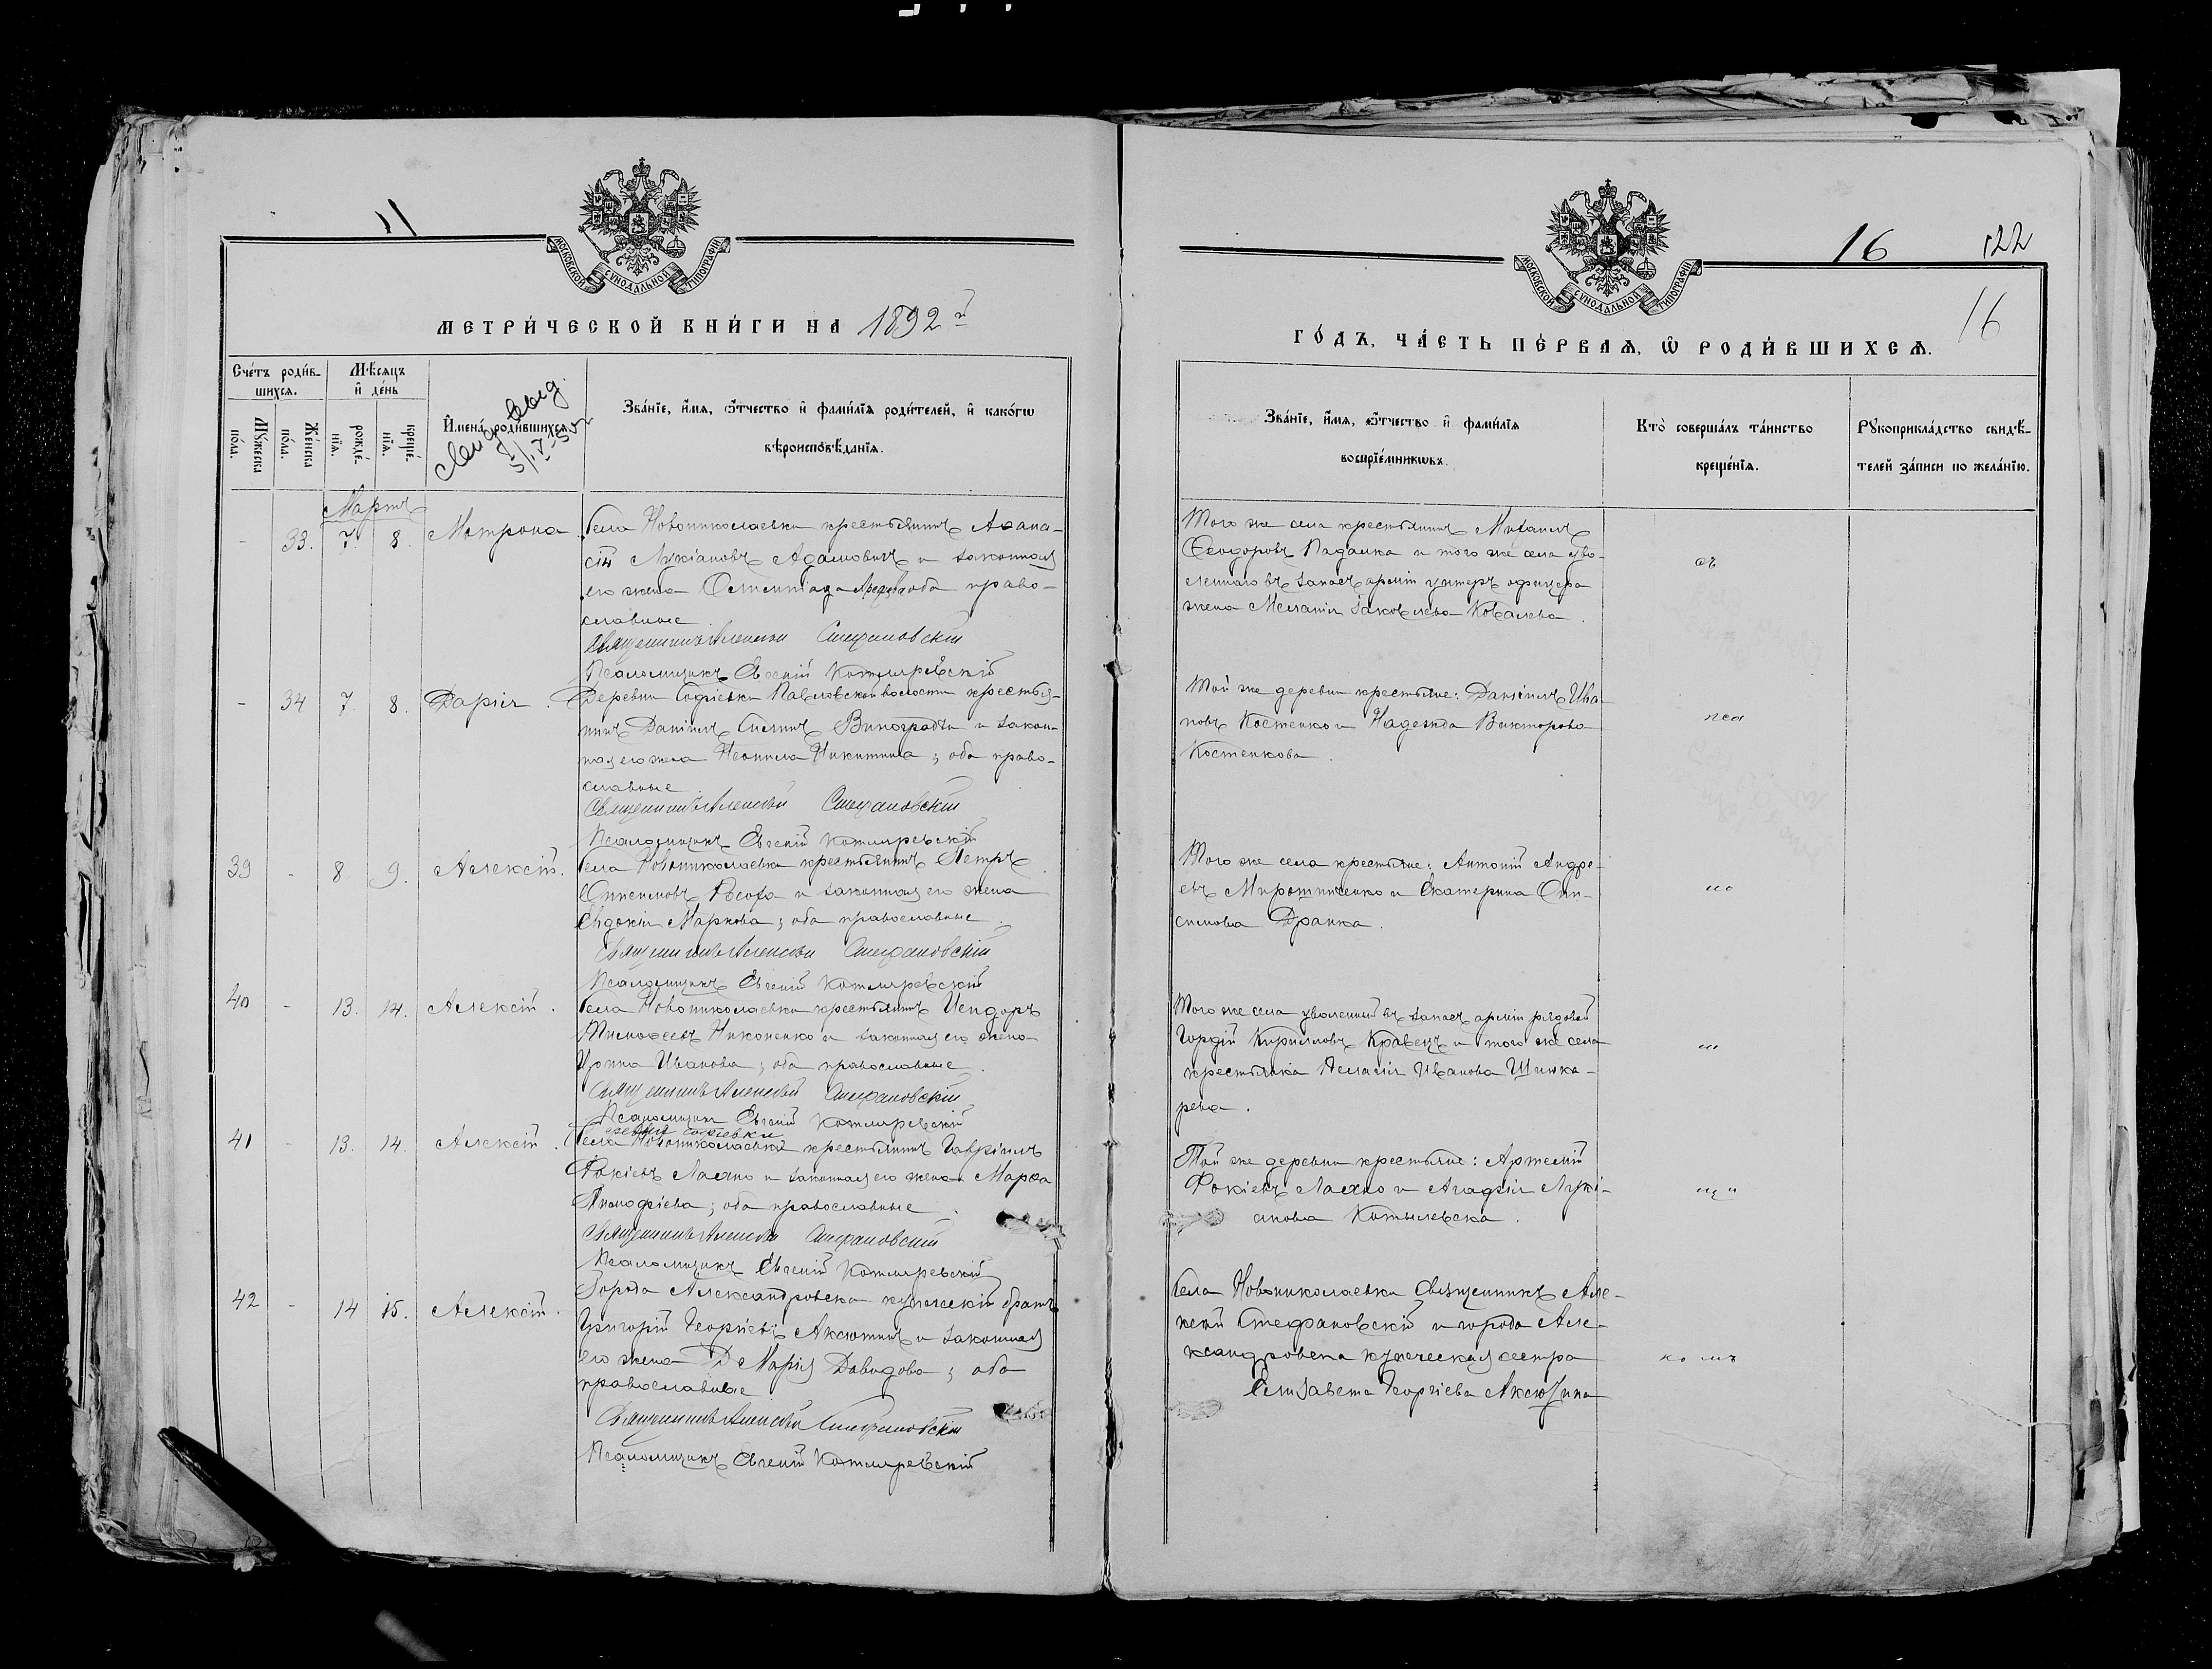 11
МОСКОВСКОЙ СѴНОДАЛЬНОЙ ТИПОГРАФІИ
МЕТРИ́ЧЕСКОЙ КНИ́ГИ НА 1892й
Сче́тъ роди́вшихсѧ.
Мꙋ́жеска по́ла.
Же́нска по́ла.
Мѣ́сѧцъ и҆ де́нь
рожде́нїѧ.
креще́нїѧ.
И҆мена̀ роди́вшихсѧ.
Зва́нїе, и҆́мѧ, ѻ҆́тчество и҆ фами́лїѧ роди́телей, и҆ како́гѡ
вѣроисповѣ́данїѧ.
Мартъ
- 33. 7. 8. Матрона.
Села Новониколаевки крестьянинъ Аѳана-
сій Лукіановъ Адамовичъ и законная
его жена оба право-
славные.
Священникъ Алексій Стефановскій
Псаломщикъ Евгеній Котляревскій
- 34 7. 8. Дарія.
Деревни Софіевки Павловской волости крестья-
нинъ Даніилъ и закон-
ная его жена Неонила Никитина; оба право-
славные.
Священникъ Алексій Стефановскій
Псаломщикъ Евгеній Котляревскій
39 - 8 9. Алексій.
Села Новониколаевки крестьянинъ Петръ
Онисимовъ и законная его жена
Евдокія Маркова; оба православные.
Священникъ Алексій Стефановскій
Псаломщикъ Евгеній Котляревскій
40 - 13. 14. Алексій.
Села Новониколаевки крестьянинъ
Тимоѳеевъ Никоненко и законная его жена
Ирина Иванова; оба православные.
Священникъ Алексій Стефановскій
Псаломщикъ Евгеній Котляревскій
41 - 13. 14. Алексій.
Софіевки
Села Новониколаевки крестьянинъ Гавріилъ
Фокіевъ Лахно и законная его жена Марѳа
оба православные.
Священникъ Алексій Стефановскій
Псаломщикъ Евгеній Котляревскій
42 - 14 15. Алексій.
Города Александровска купеческій братъ
Григорій Георгіевъ Аксютинъ и законная
его жена Марія Давидова; оба
православные
Священникъ Алексій Стефановскій
Псаломщикъ Евгеній Котляревскій
16 122
16
МОСКОВСКОЙ СѴНОДАЛЬНОЙ ТИПОГРАФІИ
ГО́ДЪ, ЧА́СТЬ ПЕ́РВАѦ, Ѡ҆ РОДИ́ВШИХСѦ.
Зва́нїе, и҆́мѧ, ѻ҆́тчество и҆ фами́лїѧ
воспрїе́мникѡвъ.
Кто̀ соверша́лъ та́инство
креще́нїѧ.
Рꙋкоприкла́дство свидѣ́-
телей за́писи по жела́нїю.
Того же села крестьянинъ Михаилъ
Ѳеодоровъ Падалка и того же села уво-
леннаго въ запасъ арміи унтеръ офицера
жена Меланія Іаковлева Ковалева.
съ
Той же деревни крестьяне: Даніилъ Ива-
новъ Костенко и Надежда Викторова
Костенкова.
пса
Того же села крестьяне: Антоній Андре-
евъ Мирошниченко и Екатерина Они-
симова Драпка.
ло
Того же села уволенный въ запасъ арміи рядовой
Гордій Кирилловъ Кравецъ и того же села
крестьянка Пелагія Иванова Шинка-
рева.
м
Той же деревни крестьяне: Артемій
Фокіевъ Лахно и Агафія Лукі-
анова
щи
Села Новониколаевки Священникъ Але-
ксій Стефановскій и города Але-
ксандровска купеческая сестра
Елизавета Георгіева Аксютина
комъ